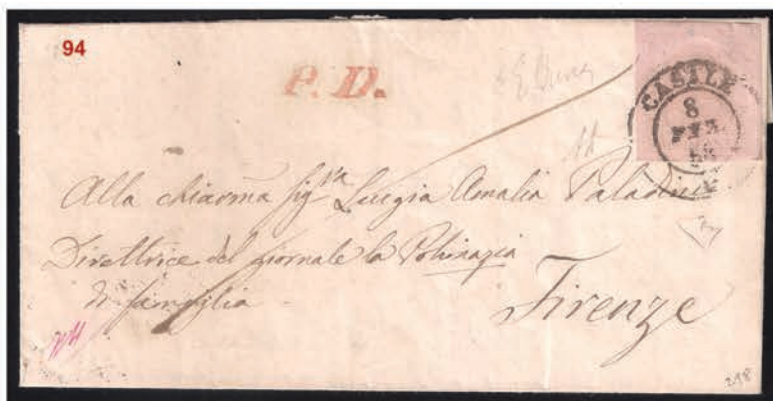 94
P. D.
CASTEL
8
FEB
Alla chiarma Sigra Luigia Amalia Paladini
Direttrice del giornale la Polimazia
di famiglia
Firenze
298